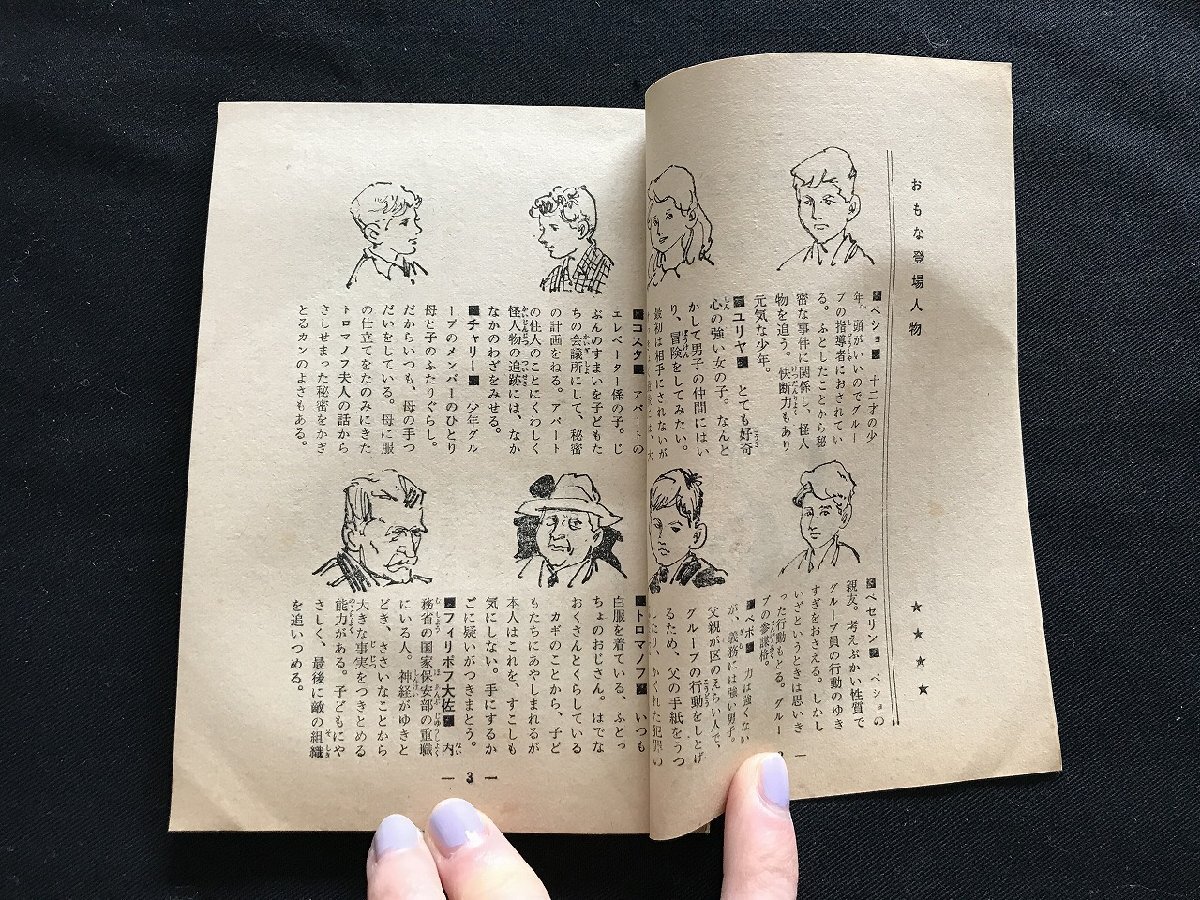 おもな登場人物
★★★★
■ペショ■ 十二才の少
年。頭がいいのでグルー
プの指導者におされてい
る。ふとしたことから秘
密な事件に関係し、怪人
物を追う。快断力もあり
元気な少年。
■ユリヤ■ とても好奇
心の強い女の子。なんと
かして男子の仲間にはい
り、冒険をしてみたい。
最初は相手にされないが
■ベセリン■ ペショの
親友。考えぶかい性質で
グループ員の行動のゆき
すぎをおさえる。しかし
いざというときは思いき
った行動もとる。グルー
プの参謀格。
■ペポ■ 力は強くない
が、義務には強い男子。
父親が区のえらい人で、
グループの行動をしとげ
るため、父の手紙をうつ
したり、かくれた犯罪い
■コスタ■ アパートの
エレベーター係の子。じ
ぶんのすまいを子どもた
ちの会議所にして、秘密
の計画をねる。アパート
の住人のことにくわしく
怪人物の追跡には、なか
なかのわざをみせる。
■チャリー■ 少年グル
ープのメンバーのひとり
母と子のふたりぐらし。
だからいつも、母の手つ
だいをしている。母に服
の仕立てをたのみにきた
トロマノフ夫人の話から
さしせまった秘密をかぎ
とるカンのよさもある。
■トロマノフ■ いつも
白服を着ている、ふとっ
ちょのおじさん。はでな
おくさんとくらしている
カギのことから、子ど
もたちにあやしまれるが
本人はこれを、すこしも
気にしない。手にするか
ごに疑いがつきまとう。
■フィリポフ大佐■ 内
務省の国家保安部の重職
にいる人。神経がゆきと
どき、ささいなことから
大きな事実をつきとめる
能力がある。子どもにや
さしく、最後に敵の組織
を追いつめる。
— 3 —